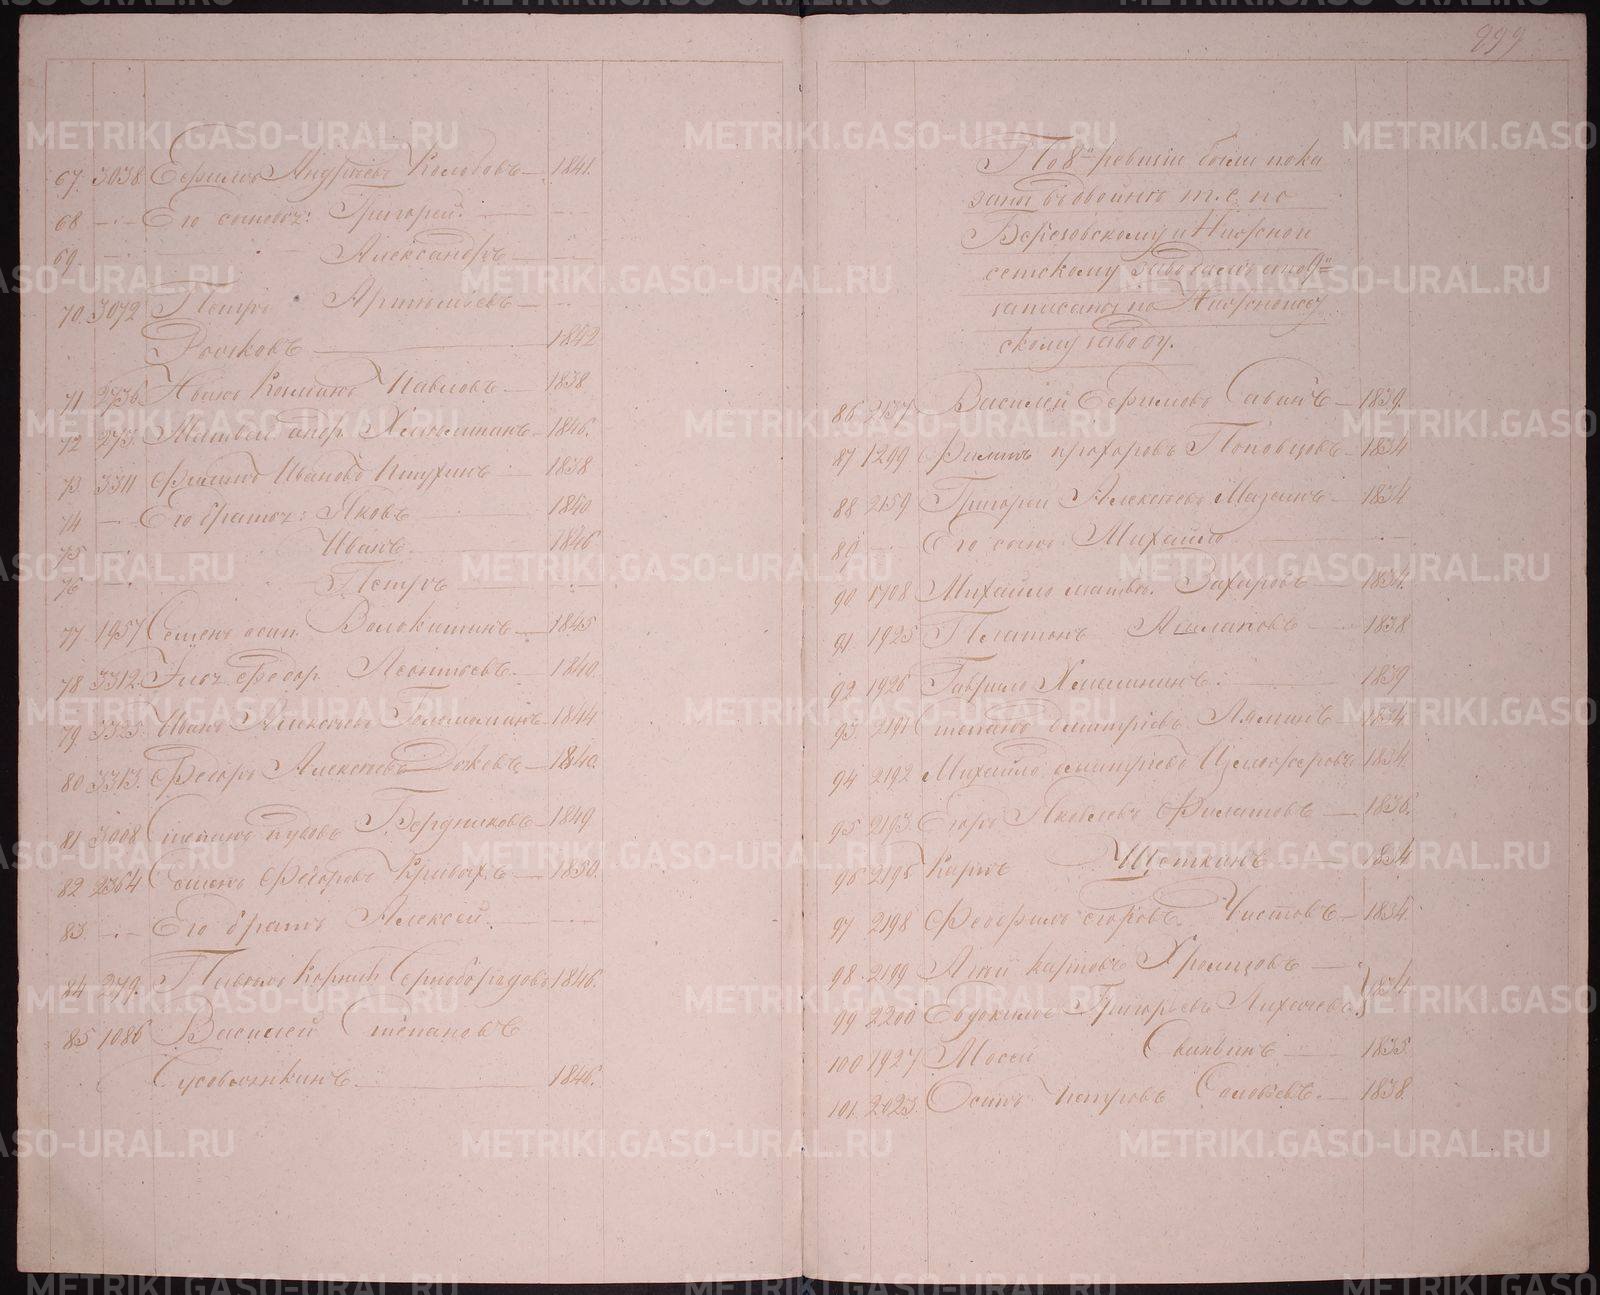 67. 3038 Ефимъ Андреевъ Колобовъ — 1841.
68 — Его сыновья: Григорей. —
69. — Александръ —
70. 3072 Петръ Артемьевъ —
Рожковъ — 1842
71 2736 Иванъ Козминъ Павловъ — 1838
72 275. Матвей Хмельнинъ — 1846.
73 3311 Филипъ Ивановъ — 1838
74 — Его братья: Яковъ — 1840
75 — Иванъ. — 1846
76 — Петръ —
77 1957 Семенъ осип. Волокитинъ — 1845
78 3312. Федор. Леонтьевъ. — 1840
79. 3323. Иванъ Алексеевъ — 1844
80 3313. Федоръ Алексеевъ — 1840.
81 3008 Степанъ Бердниковъ — 1849
82 2364 Семенъ Федоровъ Кривыхъ — 1850.
83. — Его братъ Алексей. —
84 279. Чернобородовъ 1846.
85 1086 Василей Степановъ
Сусоветкинъ. — 1846.
999
По 8й ревизіи были пока
заны вдвойнѣ т.е. по
Березовскому и Нижнеи
сетскому заводамъ а по 9й
записаны по Нижнеисет
скому заводу.
86 2137 Василей Ефимовъ Савинъ — 1839.
87 1299 Филипъ прохоровъ Поповцовъ — 1834
88 2159 Григорей Алексеевъ Мазеинъ — 1834
89 — Его сынъ Михайло —
90 1708 Михайло матве. Захаровъ — 1834.
91. 1925 Платонъ — 1838
92 1926 Гаврило Хмелининъ. — 1839
93. 2191 Степанъ дмитріевъ Ляминъ — 1834.
94 2192 Михайло дмитріевъ 1834.
95 2193. Егоръ Яковлевъ Филатовъ — 1836.
96 2196 Карпъ Щеткинъ — 1834
97 2198 егоровъ. Чистовъ — 1834.
98. 2199 карповъ Хромцовъ —
99 2200 Евдокимъ Григорьевъ Лихачевъ 1834
100 1927 Мосей Свиньинъ — 1835
101. 2023. Осипъ петровъ Соловьевъ. — 1838.
METRIKI.GASO-URAL.RU